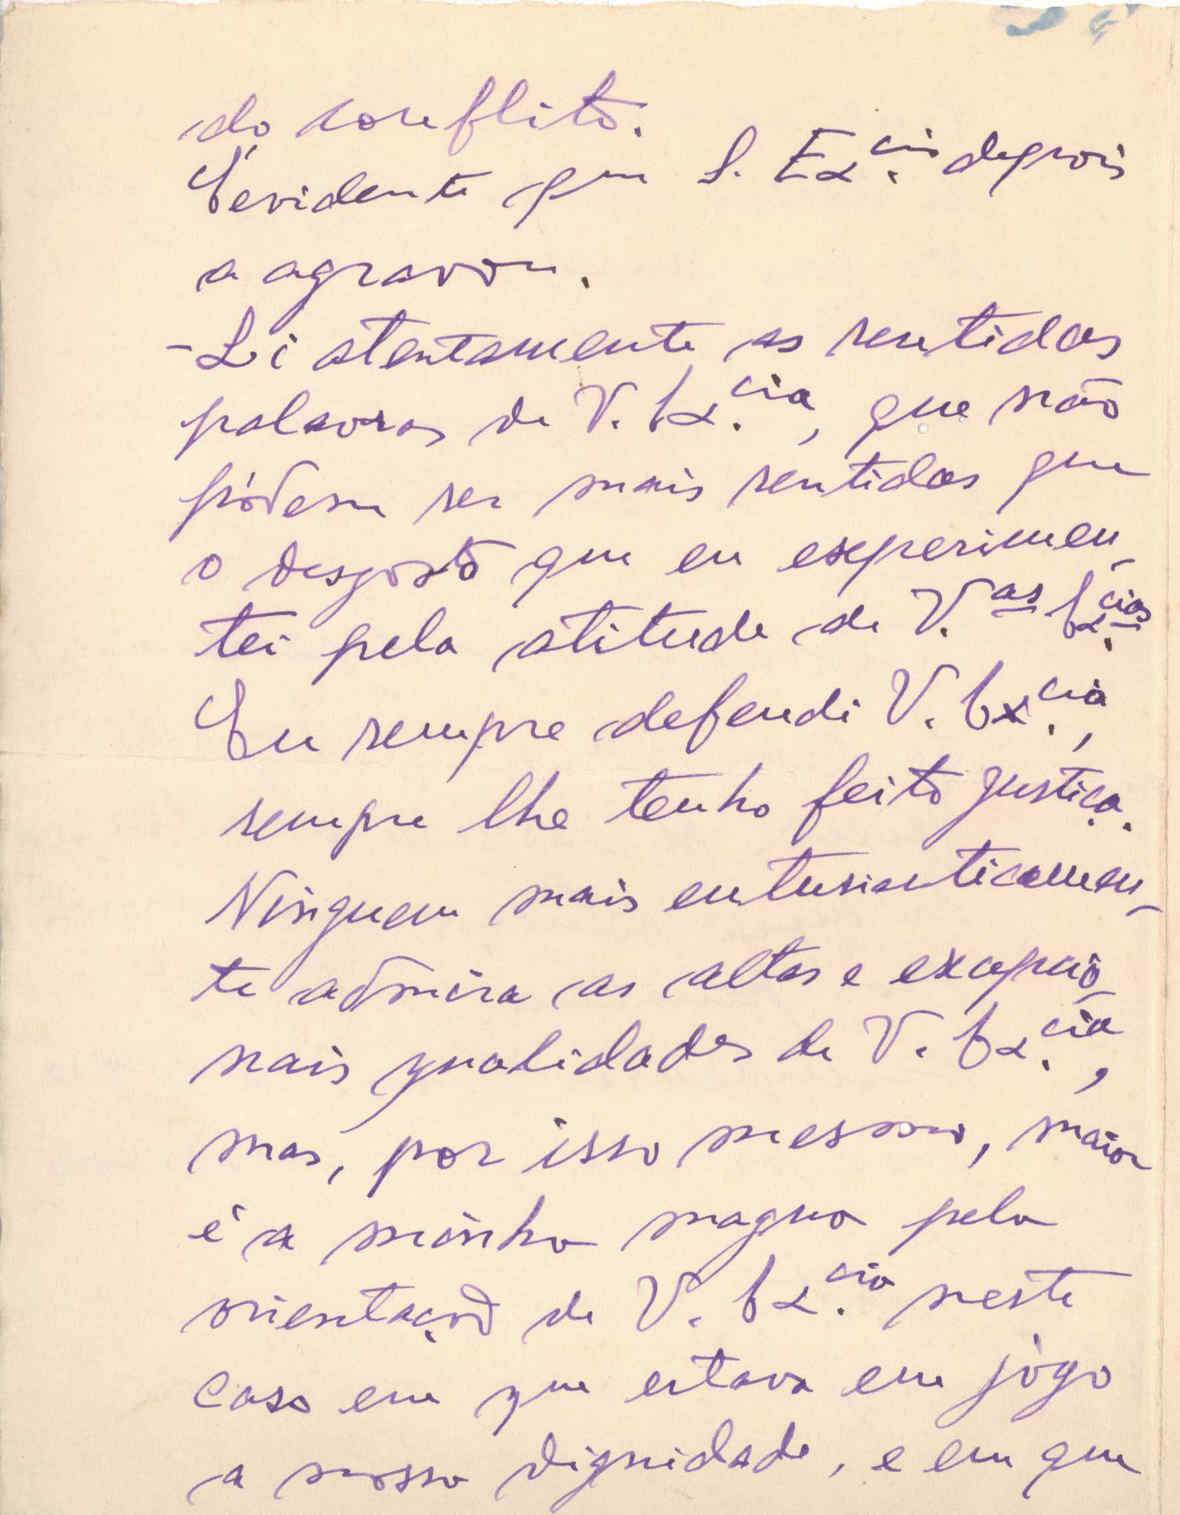 do conflito.
É evidente que S. Ex.cia depois
a agravou.
- Li atentamente as sentidas
palavras de V. Ex.cia, que não
pódem ser mais sentidas que
o desgosto que eu experimen-
tei pela atitude de V.as Ex.cias
Eu sempre defendi V. Ex.cia,
sempre lhe tenho feito justiça.
Ninguem mais entusiasticamen-
te admira as altas e excepcio-
nais qualidades de V. Ex.cia,
mas, por isso mesmo, maior
é a minha magua pela
orientação de V. Ex.cia neste
caso em que estava em jôgo
a nossa dignidade, e em que